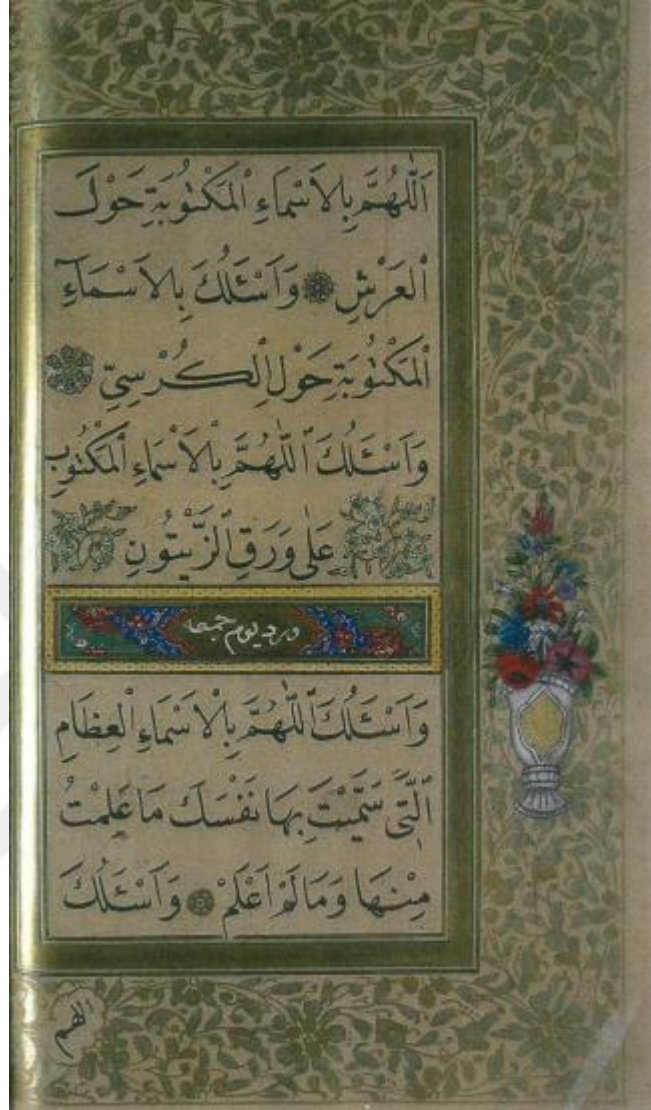 اَللّٰهُمَّ بِالاَسْمَاءِ الْمَكْتُوبَةِ حَوْلَ
الْعَرْشِ وَاَسْئَلُكَ بِالاَسْمَاءِ
الْمَكْتُوبَةِ حَوْلَ الْكُرْسِيِّ
وَاَسْئَلُكَ اَللّٰهُمَّ بِالْاَسْمَاءِ الْمَكْتُوبِ
عَلٰى وَرَقِ الزَّيْتُونِ
ورد يوم جمعه
وَاَسْئَلُكَ اَللّٰهُمَّ بِالْاَسْمَاءِ الْعِظَامِ
الَّتِى سَمَّيْتَ بِهَا نَفْسَكَ مَا عَلِمْتُ
مِنْهَا وَمَا لَمْ اَعْلَمْ وَاَسْئَلُكَ
اللهم